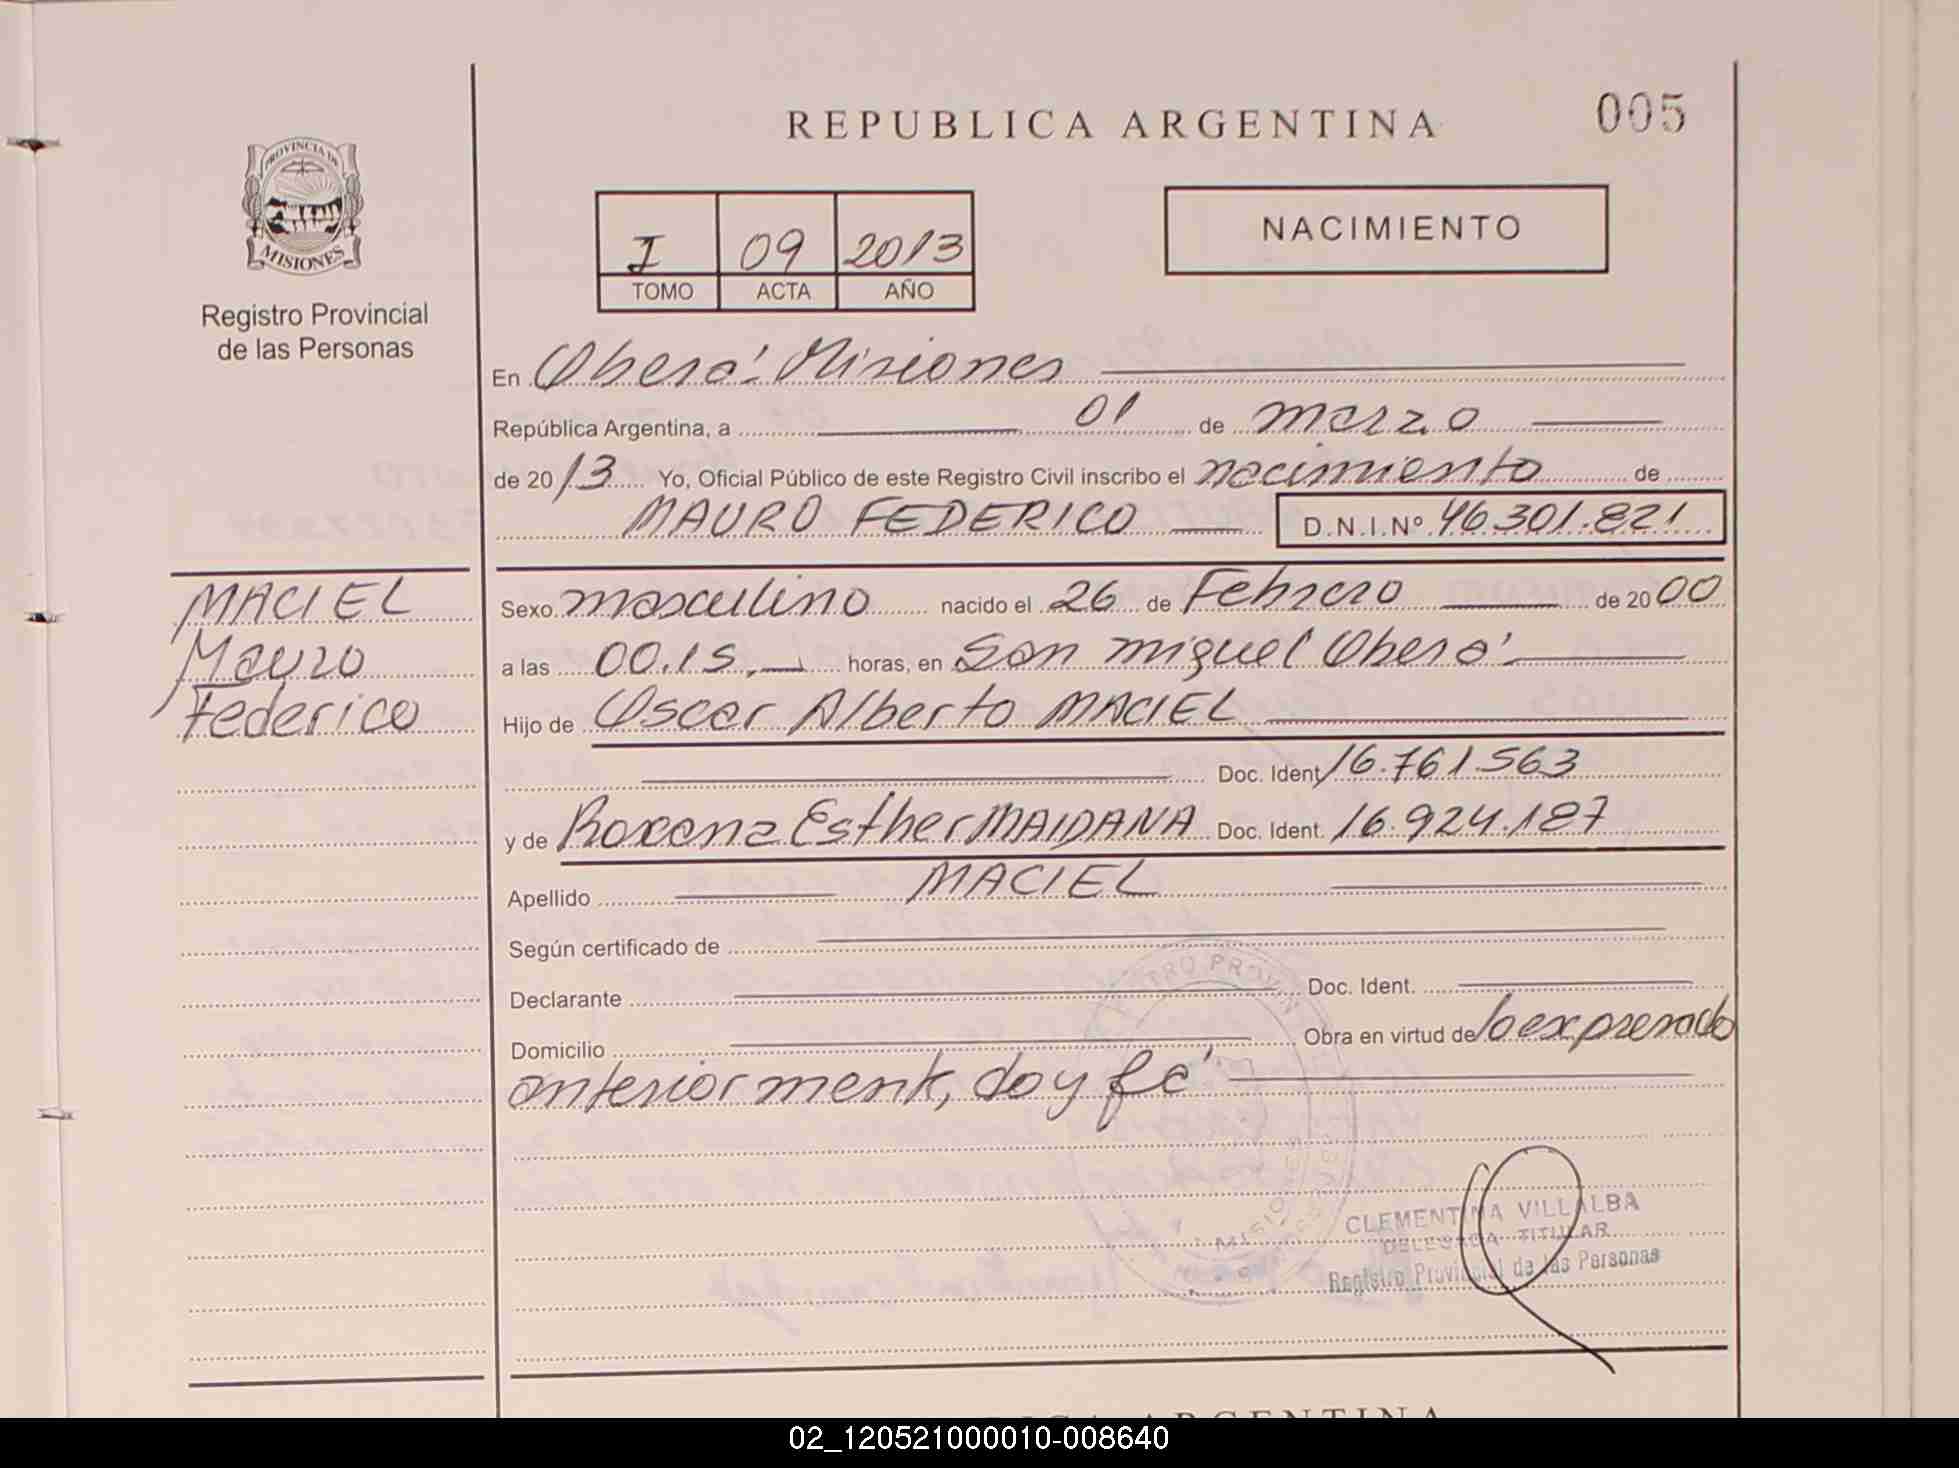 REPUBLICA ARGENTINA
005
PROVINCIA DE
MISIONES
Registro Provincial
de las Personas
I 09 2013
TOMO ACTA AÑO
NACIMIENTO
En Oberá - Misiones
República Argentina, a 01 de marzo
de 2013 Yo, Oficial Público de este Registro Civil inscribo el nacimiento de
MAURO FEDERICO D.N.I.Nº 46.301.821
MACIEL
Mauro
Federico
Sexo masculino nacido el 26 de Febrero de 2000
a las 00.15 horas, en San Miguel Oberá
Hijo de Oscar Alberto MACIEL
Doc. Ident 16.761.563
y de Roxana Esther MAIDANA Doc. Ident. 16.924.187
Apellido MACIEL
Según certificado de
Declarante Doc. Ident.
Domicilio Obra en virtud de lo expresado
anteriormente, doy fé
CLEMENTINA VILLALBA
DELEGADA TITULAR
Registro Provincial de las Personas
MISIONES
ARGENTINA
02_120521000010-008640